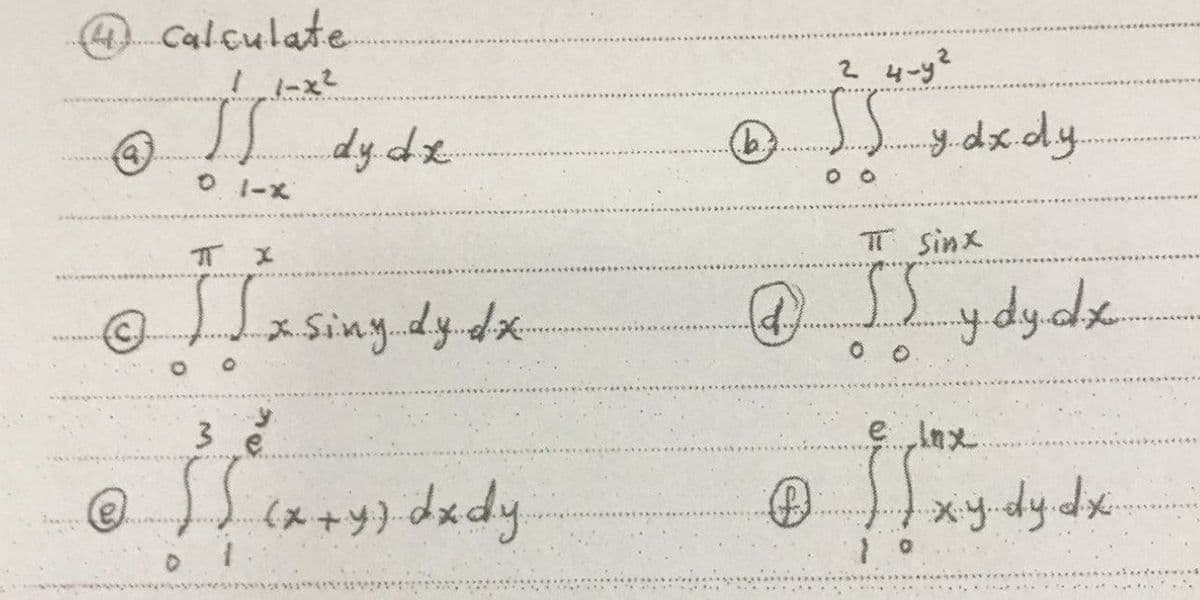 ④ Calculate
ⓐ ∫₀¹ ∫_{1-x}^{1-x²} dy dx ⓑ ∫₀² ∫₀^{4-y²} y dx dy
ⓒ ∫₀^π ∫₀^x x sin y dy dx ⓓ ∫₀^π ∫₀^{sin x} y dy dx
ⓔ ∫₀³ ∫₁^{e^y} (x+y) dx dy ⓕ ∫₁^e ∫₀^{ln x} xy dy dx